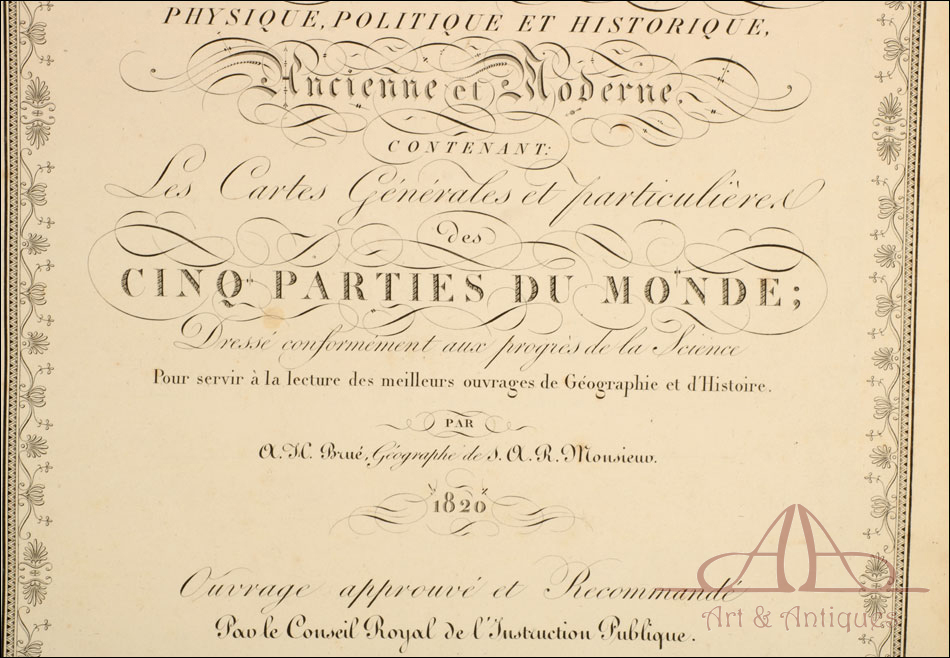 PHYSIQUE, POLITIQUE ET HISTORIQUE,
Ancienne et Moderne,
CONTENANT:
Les Cartes Générales et particulières
des
CINQ PARTIES DU MONDE;
Dressé conformément aux progrès de la Science
Pour servir à la lecture des meilleurs ouvrages de Géographie et d'Histoire.
PAR
A. H. Brué, Géographe de S. A. R. Monsieur.
1820
Ouvrage approuvé et Recommandé
Par le Conseil Royal de l'Instruction Publique.
AA
Art & Antiques